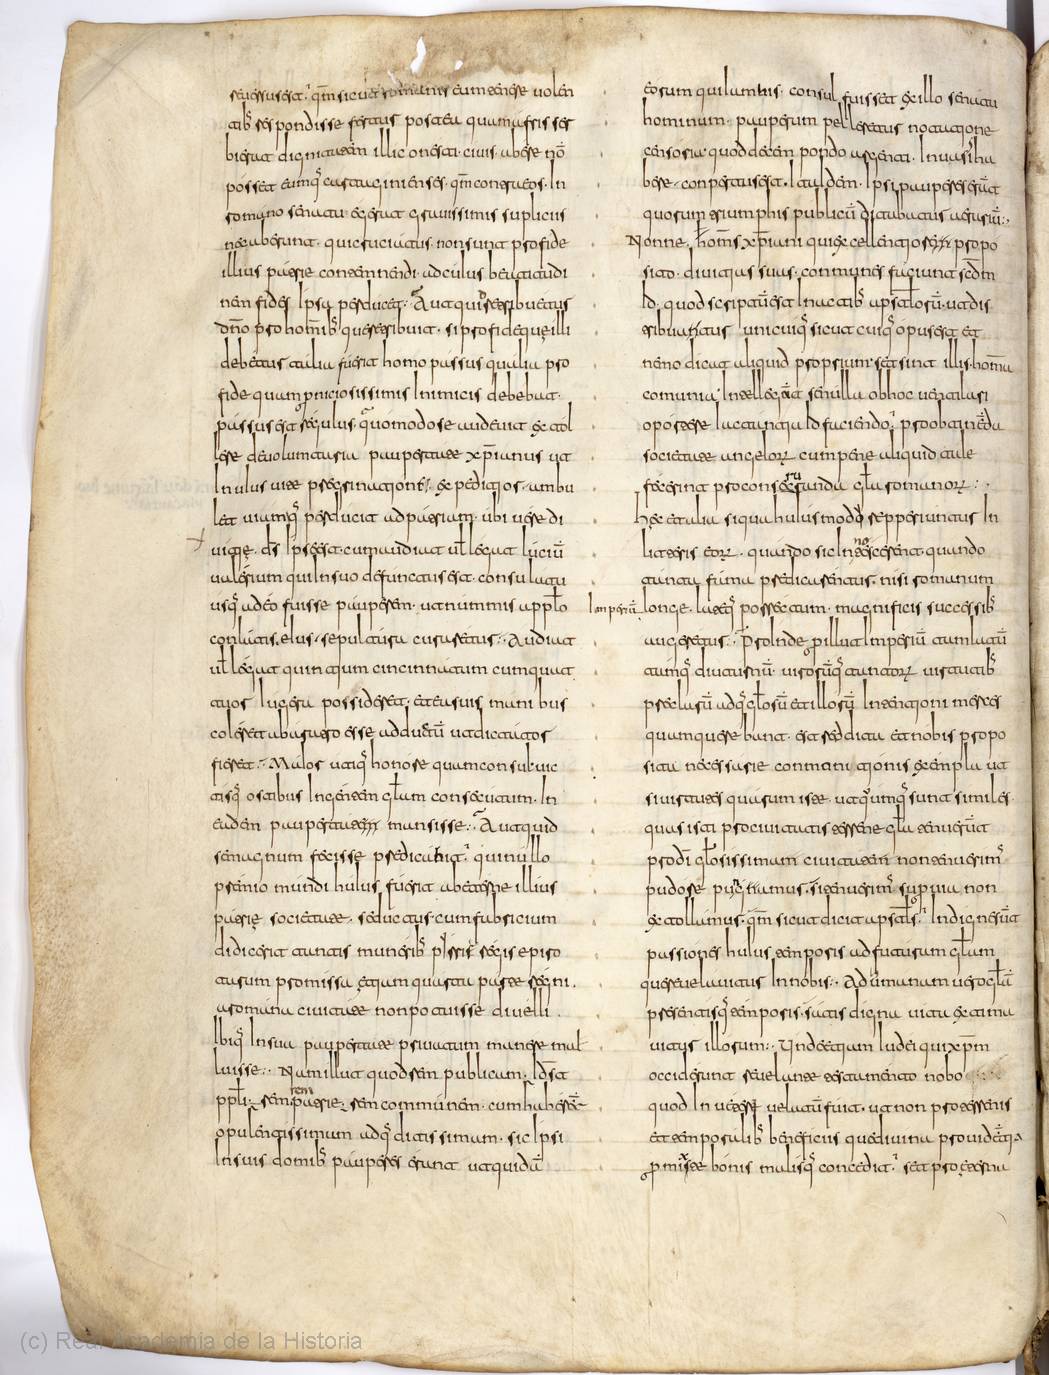 reversus est; qm sicut romanis eum tenere volen
tibȝ respondisse fertur postea quam afris ser
bierat dignitatem illic onesti civis abere nō
posset eumqȝ cartaginienses qm contra eos In
romano senatu egerat gravissimis supliciis
necaberunt qui cruciatus non sunt pro fide
illius patrie contemnendi ad cuius beatitudi
nem fides Ipsa perducit: Aut quid retribuetur
dno pro homibȝ que retribuit si pro fide que illi
debetur talia fuerit homo passus qualia pro
fide quam perniciosissimis Inimicis debebat
passus est regulus quomodo se audevit extol
lere de voluntaria paupertate xpianus ut
In uius vite peregrinatione expeditior ambu
let viam qȝ perducit ad patriam ubi vere di
vitie ds Ipse est cum audiat vl legat luciū
valerium qui In suo defunctus est consulatu
usqȝ adeo fuisse pauperem ut nummis a pplo
conlatis eius sepultura curaretur: Audiat
vl legat quintium cincinnatum cum quat
tuor Iugera possideret et ea suis manibus
coleret ab aratro esse adductū ut dictator
fieret Maior utiqȝ honore quam consul vic
tisqȝ ostibus Ingentem glam consecutum In
eadem paupertate mansisse: Aut quid
se magnum fecisse predicabit qui nullo
premio mundi huius fuerit ab eterne illius
patrie societate seductus cum fabricium
didicerit tantis muneribȝ pirri regis epiro
tarum promissa etiam quarta parte regni
a romana civitate non potuisse divelli
Ibiqȝ In sua paupertate privatum manere mal
luisse: Nam illut quod rem publicam Id est
ppli rem patrie rem communem cum haberēt
opulentissimam adqȝ ditissimam sic Ipsi
In suis domibȝ pauperes erant ut quidā
eorum qui Iam bis consul fuisset ex illo senatu
hominum pauperum pelleretur notatione
censoria quod decem pondo argenti In vasis ha
bere conpertus est Ita Idem Ipsi pauperes erāt
quorum triumphis publicū ditabatur erariū:
Nonne homs xpiani qui excellentiore propo
sito divitias suas conmunes faciunt scdm
Id quod scriptū est In actibȝ apstlorū ut dis
tribuatur unicuiqȝ sicut cuiqȝ opus est et
nemo dicat aliquid proprium set sint illis homa
comunia Intellegāt se nulla ob hoc ventilari
oportere Iactantia Id faciendo pro obtinēda
societate angelorꝝ cum pene aliquid tale
fecerint pro conservanda gla romanorꝝ:
hec et alia siqua huiusmodi repperiuntur In
litteris eorꝝ quando sic Innotescerent quando
tanta fama predicarentur nisi romanum
Imperiū longe lateqȝ porrectum magnificis successibȝ
augeretur: Proinde per illut Imperiū tam latū
tamqȝ diuturnū virorūqȝ tantorꝝ virtutibȝ
preclarū adqȝ gloriosū et illorū Intentioni merces
quam querebant est reddita et nobis propo
sita necessarie conmonitionis exenpla ut
si virtutes quarum iste utqumqȝ sunt similes
quas isti pro civitatis terrene gla tenuerūt
pro di gloriosissimam civitatem non tenuerimȝ
pudore pungamur si tenuerimȝ supvia non
extollamur qm sicut dicit apstls Indigne sūt
passiones huius temporis ad futuram glam
que revelavitur In nobis: Ad umanam vero glā
presentisqȝ temporis satis digna vita extima
vitur illorum: Unde etiam Iudei qui xpm
occiderunt revelante testamento nobo
quod In vetere velatū fuit ut non pro terrenis
et temporalibȝ beneficiis que divina providētia
permixte bonis malisqȝ concedit set pro eterna